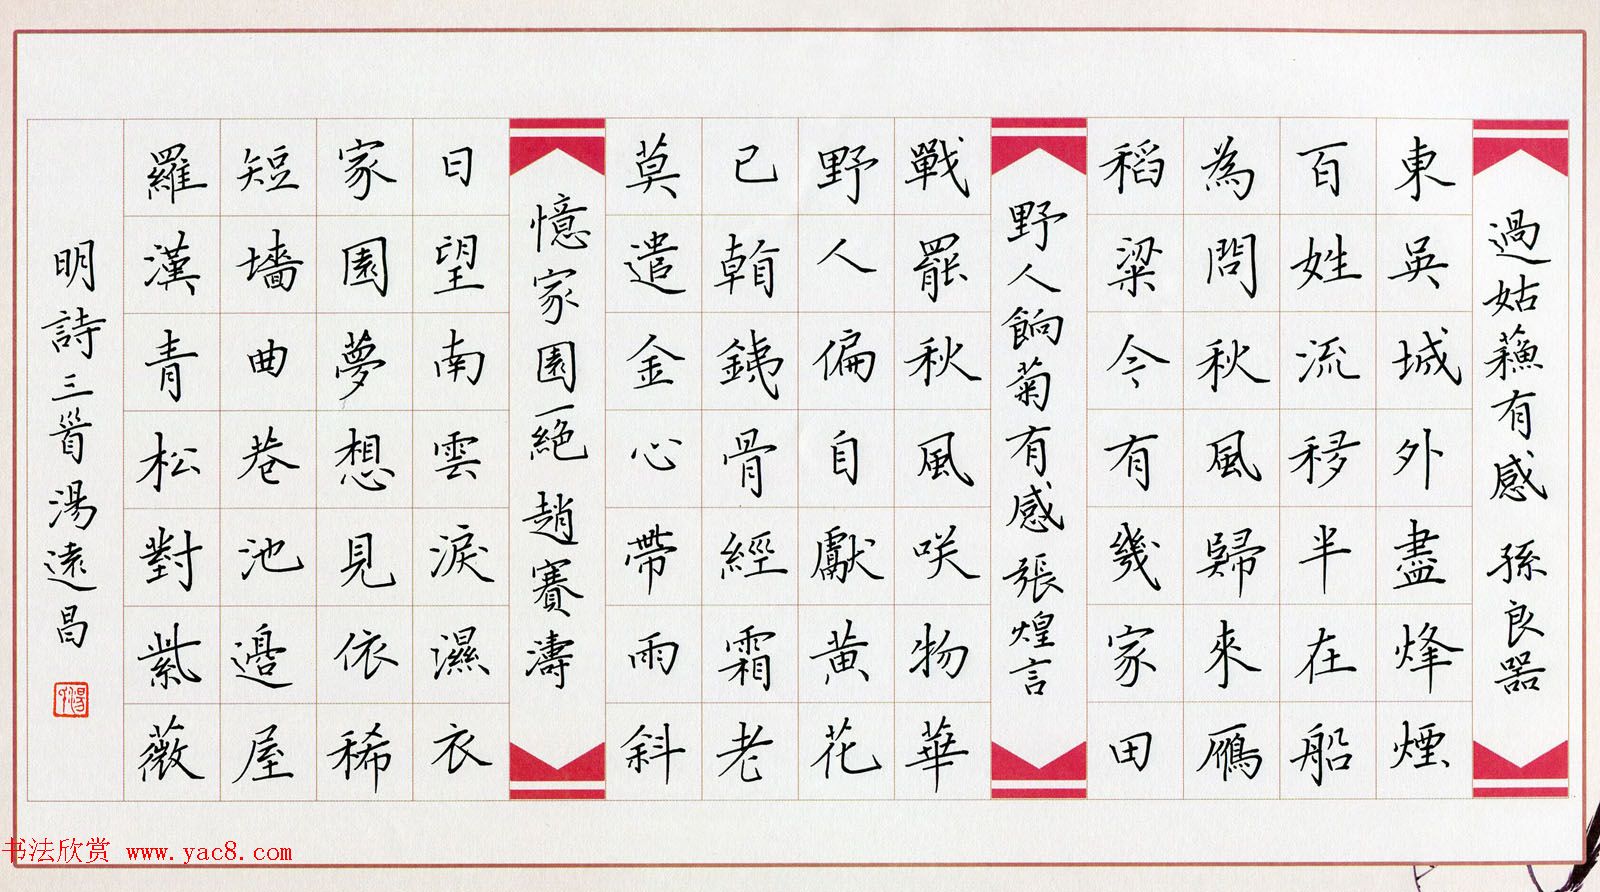 過姑蘓有感 孫良器
東吳城外盡烽煙
百姓流移半在船
為問秋風歸來鴈
稻粱今有幾家田
野人餉菊有感 張煌言
戰罷秋風咲物華
野人偏自獻黃花
已看銕骨經霜老
莫遣金心帶雨斜
憶家園一絕 趙賽濤
日望南雲淚濕衣
家園夢想見依稀
短墻曲巷池邊屋
羅漢青松對紫薇
明詩三首湯遠昌
书法欣赏 www.yac8.com